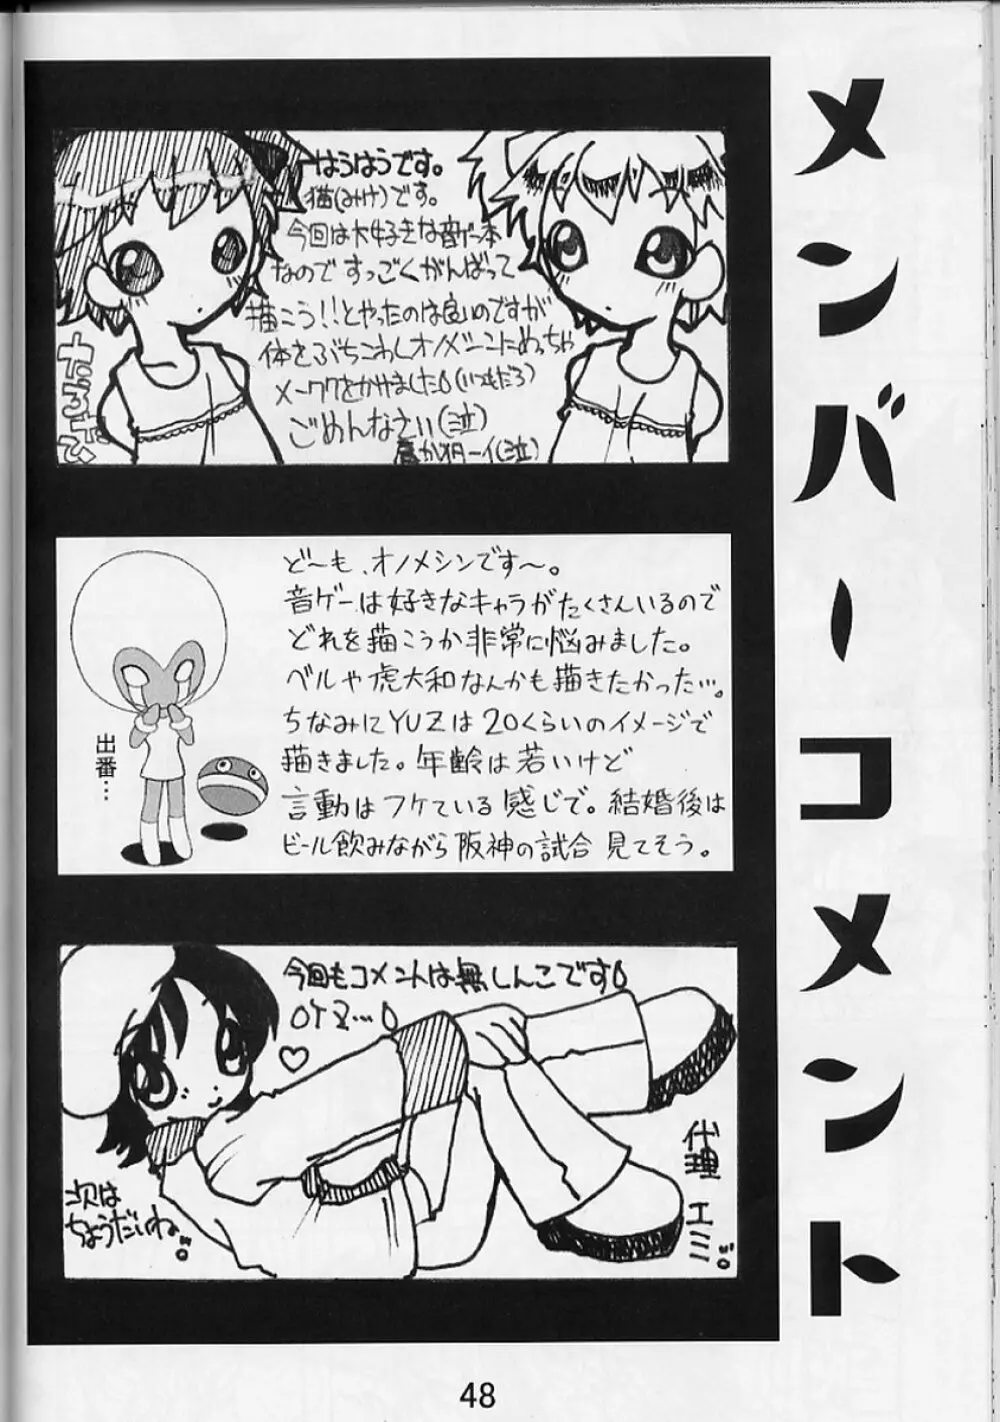 メンバーコメント
はうはうです。
猫(みけ)です。
今回は大好きな音ゲー本
なのですっごくがんばって
描こう!!とやったのは良いのですが
体をぶちこわしオノメシンにめっちゃ
メーワクをかけました(いつもだろ)
ごめんなさい(泣)
ど〜も、オノメシンです〜。
音ゲーは好きなキャラがたくさんいるので
どれを描こうか非常に悩みました。
ベルや虎大和なんかも描きたかった…。
ちなみにYUZは20くらいのイメージで
描きました。年齢は若いけど
言動はフケている感じで。結婚後は
ビール飲みながら阪神の試合見てそう。
出番…
今回もコメントは無しんこです
OTZ…
♡
代理 エミ
次は
ちょうだいね
48